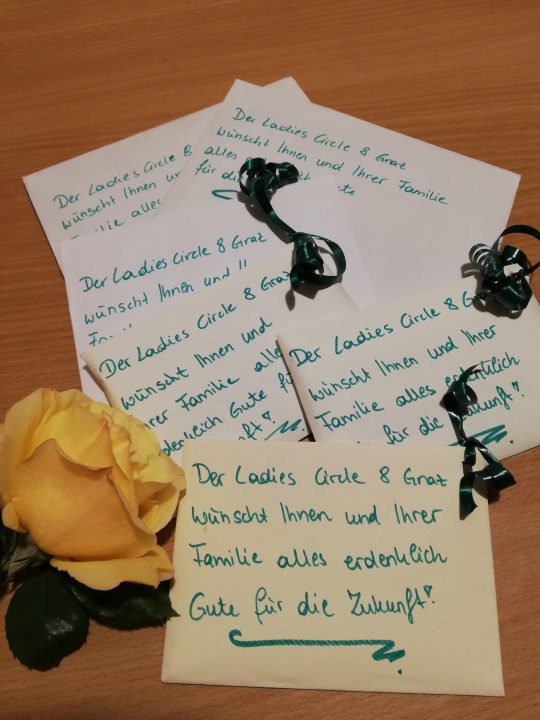 Der Ladies Circle 8
wünscht Ihnen
Familie alles
Der Ladies Circle 8 Graz
wünscht Ihnen und Ihrer Familie
alles
für die
Der Ladies Circle 8 Graz
wünscht Ihnen und
Der Ladies Circle 8 Graz
wünscht Ihnen und
Familie alle
erdenklich Gute
Der Ladies Circle 8 Graz
wünscht Ihnen und Ihrer
Familie alles erdenklich
für die Zukunft!
Der Ladies Circle 8 Graz
wünscht Ihnen und Ihrer
Familie alles erdenklich
Gute für die Zukunft!